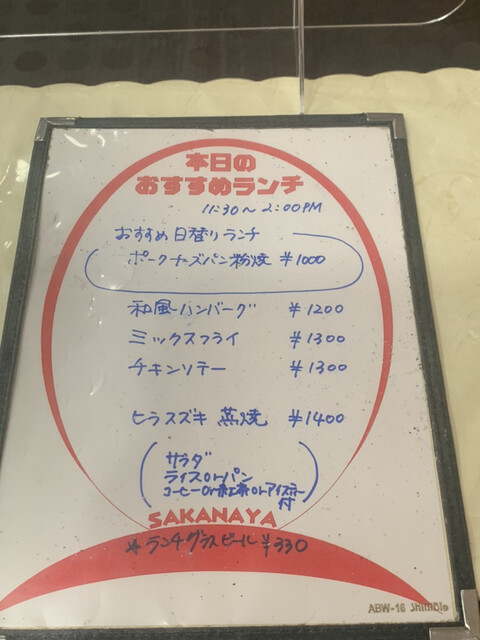 本日の
おすすめランチ
11:30〜2:00PM
おすすめ日替りランチ
ポークチーズパン粉焼 ¥1000
和風ハンバーグ ¥1200
ミックスフライ ¥1300
チキンソテー ¥1300
ヒラスズキ 蒸焼 ¥1400
サラダ
ライスorパン
コーヒーor紅茶orアイスコーヒー
付
SAKANAYA
*ランチグラスビール ¥330
ABW-16 Shimbi